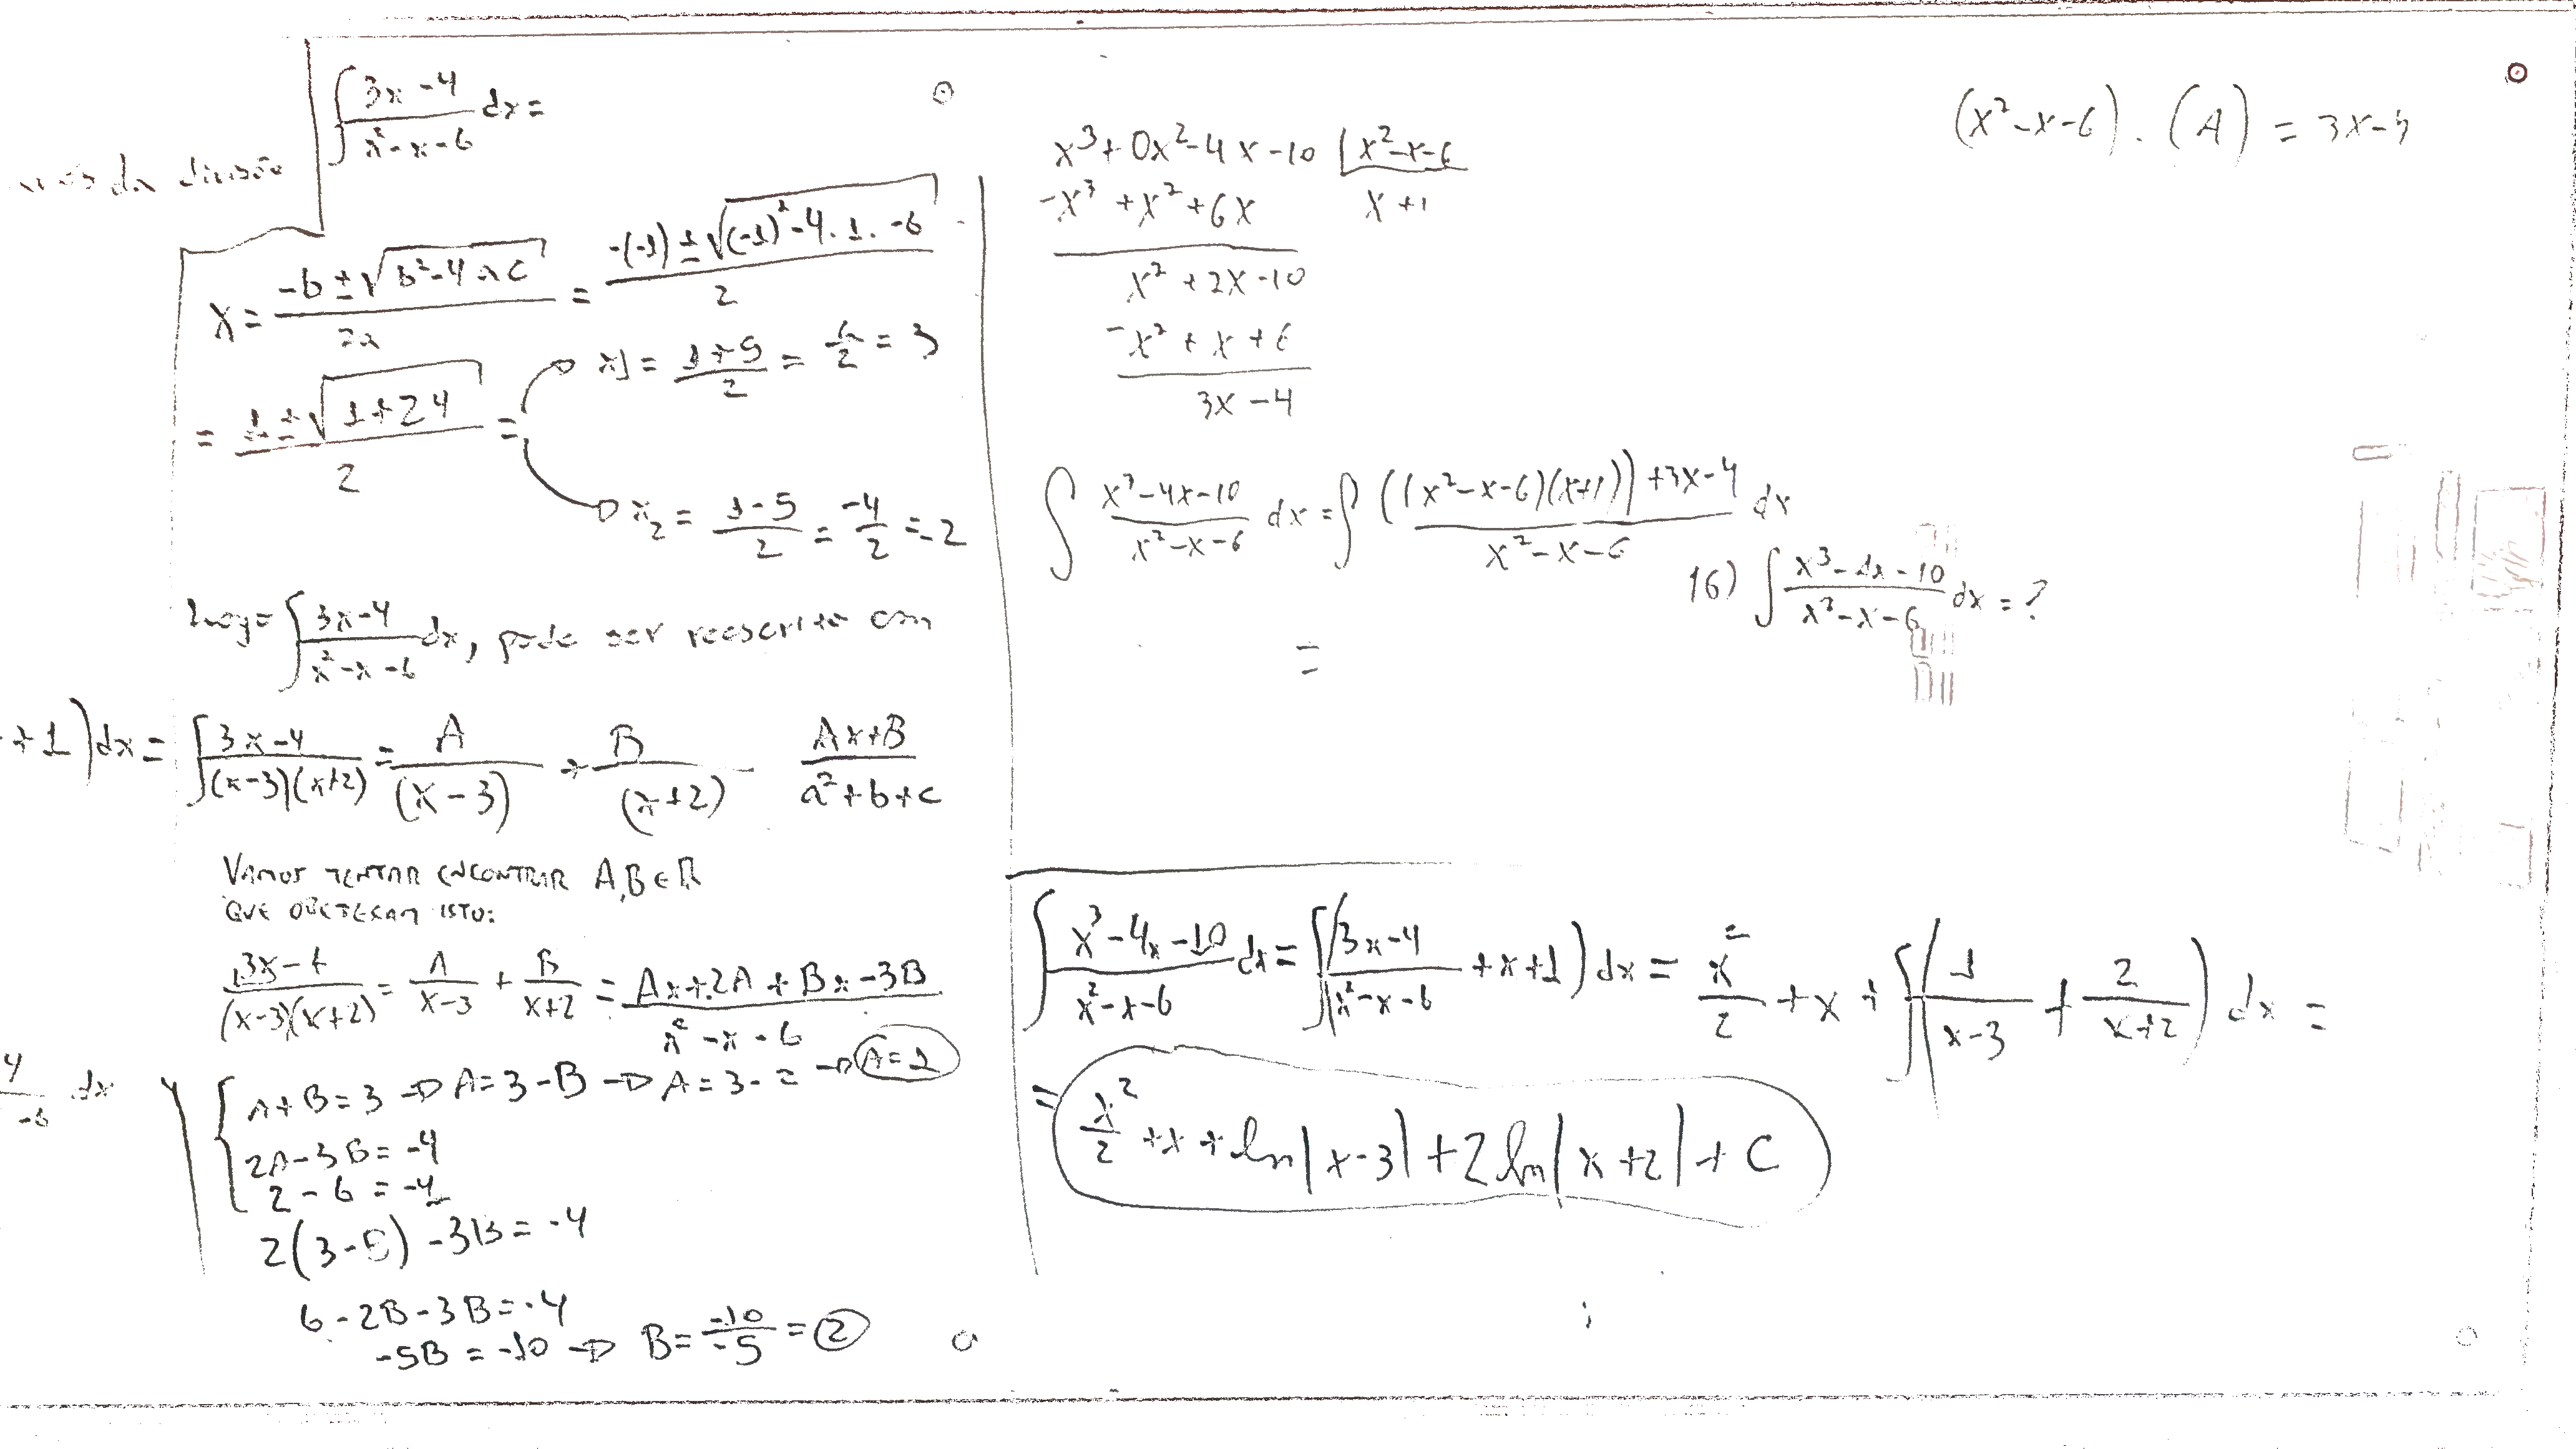 ∫ (3x-4)/(x²-x-6) dx =
da divisão
x = (-b ± √(b²-4ac))/2a = (-(-1) ± √((-1)²-4.1.-6))/2
= (1 ± √(1+24))/2 =
x1 = (1+5)/2 = 6/2 = 3
x₂ = (1-5)/2 = -4/2 = -2
∫ (3x-4)/(x²-x-6) dx, pode ser reescrita com
+1) dx =
∫ (3x-4)/((x-3)(x+2)) = A/(x-3) + B/(x+2)
(Ax+B)/(a²+b+c)
VAMOS TENTAR ENCONTRAR A,B ∈ R
QUE OBEDEÇAM ISTO:
(3x-4)/((x-3)(x+2)) = A/(x-3) + B/(x+2) = (Ax+2A+Bx-3B)/(x²-x-6)
4/-6 dx
{ A+B=3 → A=3-B → A=3-2 → A=1
2A-3B=-4
2-6=-4
2(3-B)-3B=-4
6-2B-3B=-4
-5B=-10 → B = -10/-5 = 2
x³+0x²-4x-10 | x²-x-6
-x³+x²+6x x+1
x²+2x-10
-x²+x+6
3x-4
∫ (x³-4x-10)/(x²-x-6) dx = ∫ (((x²-x-6)(x+1))+3x-4)/(x²-x-6) dx
=
(x²-x-6).(A) = 3x-4
16) ∫ (x³-4x-10)/(x²-x-6) dx = ?
∫ (x³-4x-10)/(x²-x-6) dx = ∫((3x-4)/(x²-x-6) + x+1) dx = x²/2 + x + ∫(1/(x-3) + 2/(x+2)) dx =
= x²/2 + x + ln|x-3| + 2ln|x+2| + C